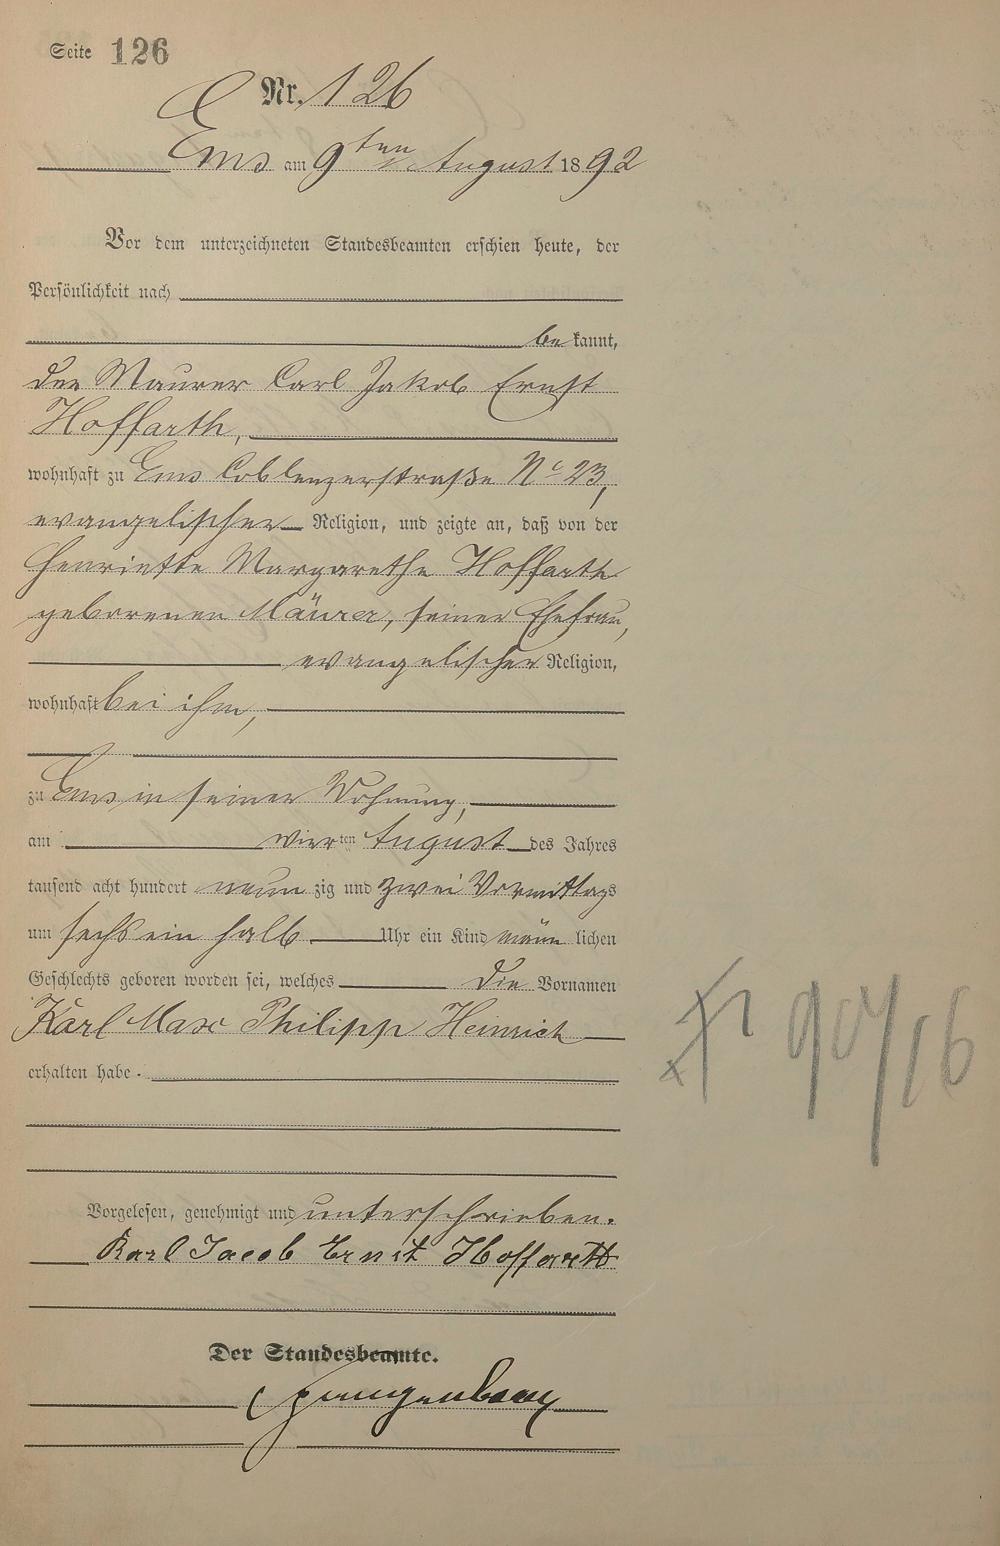 Seite 126
Nr. 126
Ems am 9ten August 1892
Vor dem unterzeichneten Standesbeamten erschien heute, der
Persönlichkeit nach
be kannt,
der Maurer Carl Jakob Ernst
Hoffarth,
wohnhaft zu Ems Coblenzerstraße No 23,
evangelischer Religion, und zeigte an, daß von der
Henriette Margarethe Hoffarth
geborenen Mäurer, seiner Ehefrau,
evangelischer Religion,
wohnhaft bei ihm,
zu Ems in seiner Wohnung,
am vierten August des Jahres
tausend acht hundert neun zig und zwei Vormittags
um sechs ein halb Uhr ein Kind männ lichen
Geschlechts geboren worden sei, welches die Vornamen
Karl Max Philipp Heinrich
erhalten habe.
Vorgelesen, genehmigt und unterschrieben.
Karl Jacob Ernst Hoffarth
Der Standesbeamte.